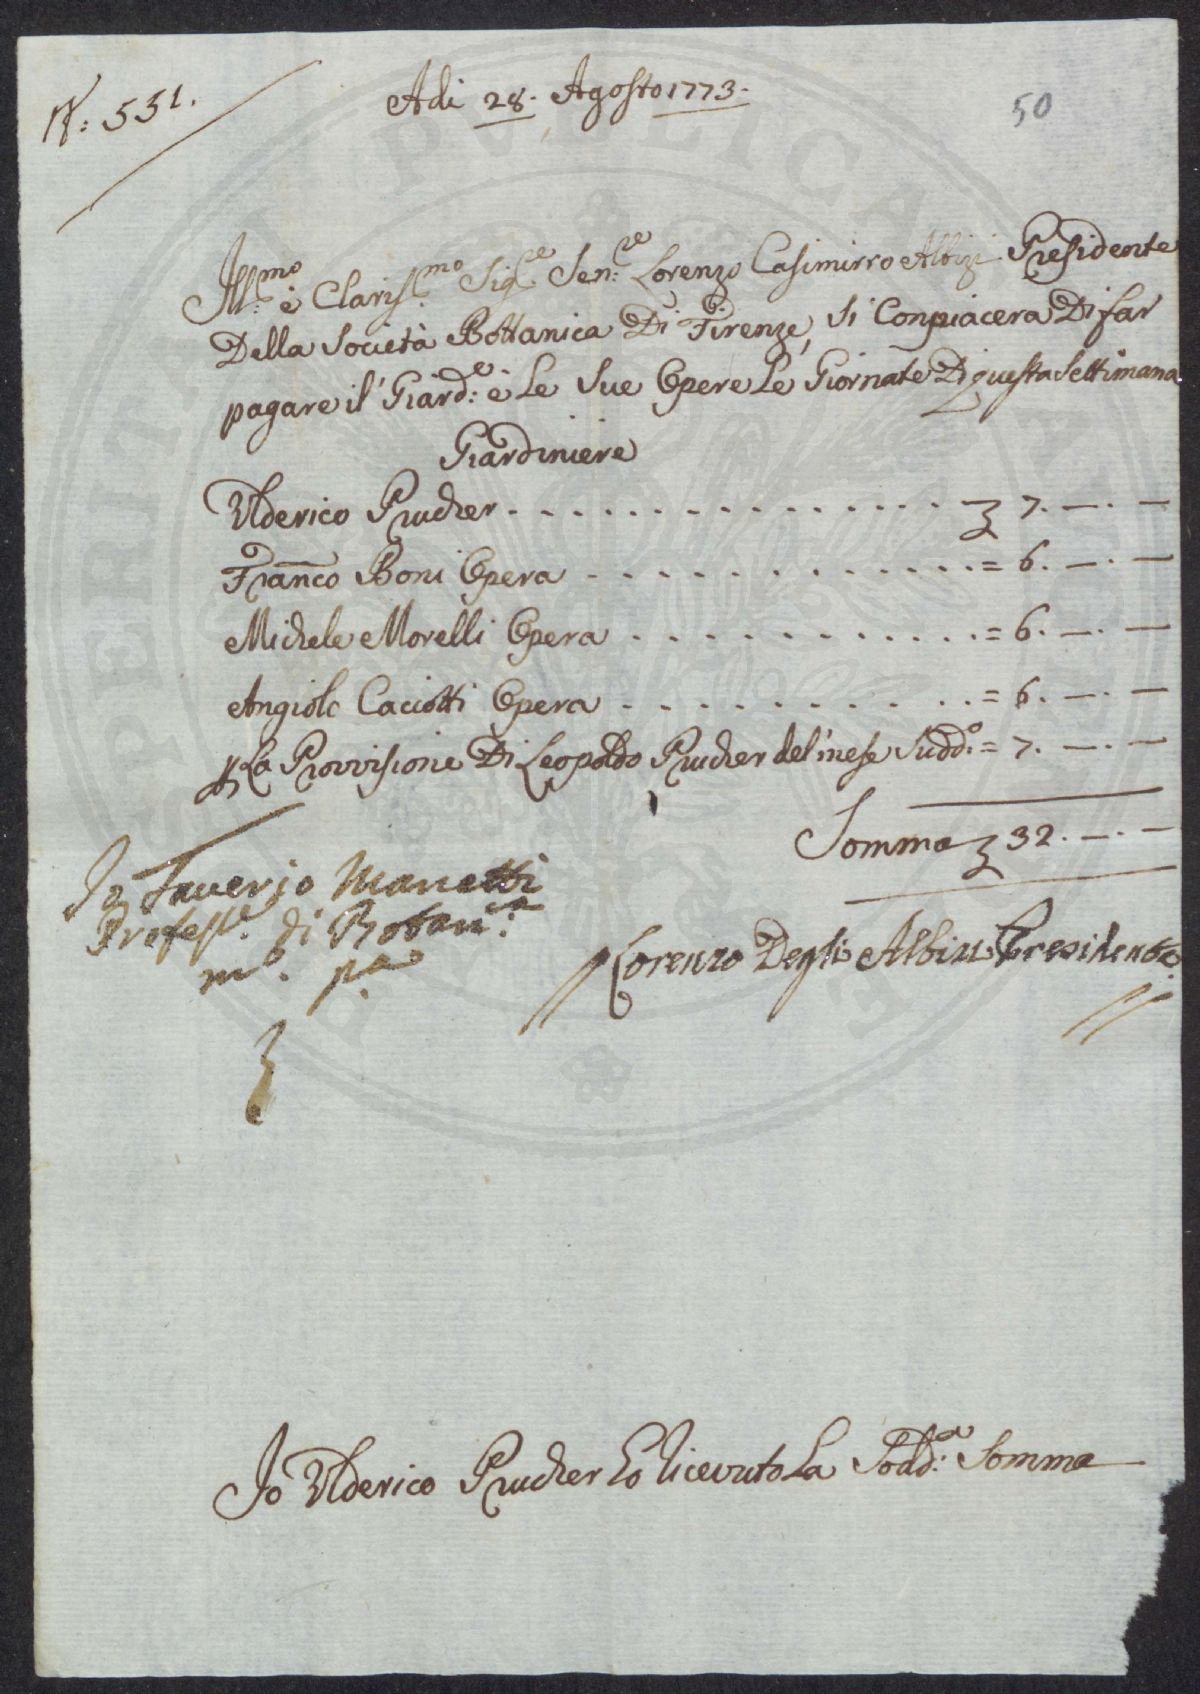 N: 551.
Adi 28. Agosto 1773.
50
Ill.mo è Clariss.mo Sig.re Sen.re Lorenzo Casimirro Albizi Presidente
Della Società Bottanica Di Firenze, Si Conpiacera Di far
pagare il Giard.e è Le Sue Opere Le Giornate Di questa Settimana
Giardiniere
Ulderico Prucher . . . . . . . . . . . . . . . . 7. —. —
Franco Boni Opera . . . . . . . . . . . . . . = 6. —. —
Michele Morelli Opera . . . . . . . . . . . . = 6. —. —
Angiolo Caciotti Opera . . . . . . . . . . . = 6. —. —
p La Provvisione Di Leopoldo Prucher del mese Sudd.o = 7. —. —
Somma 32. —. —
Io Saverio Manetti
Profess.e di Botan.ca
m.o p.a
Lorenzo Degli Albizi Presidente
Io Ulderico Prucher ho ricevuto La Sodd.a Somma